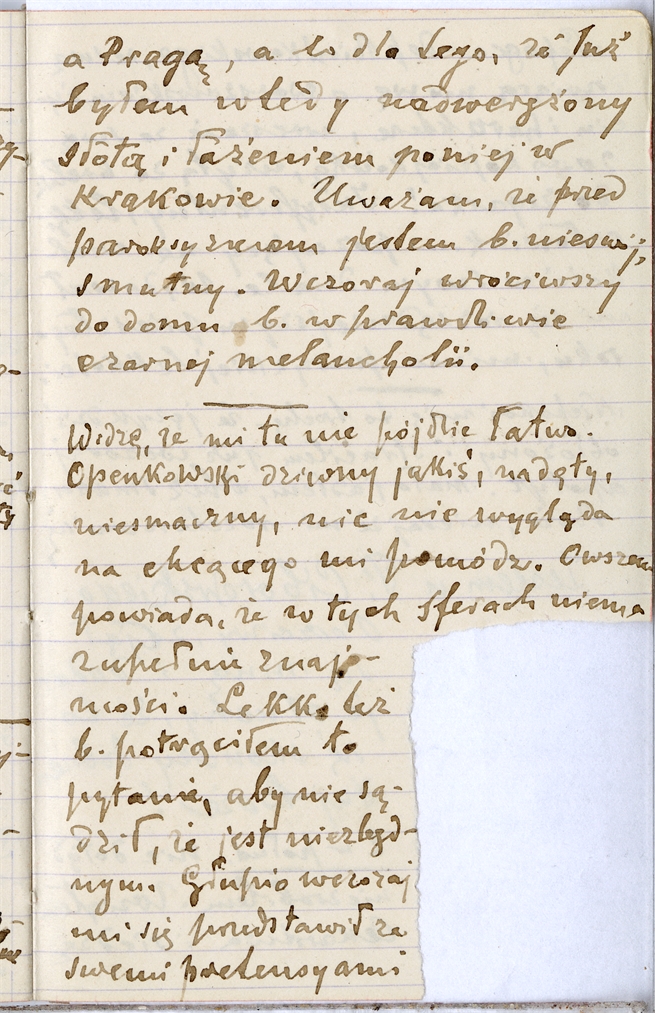 a Pragą, a to dla tego, że już
byłem wtedy nadwerężony
słotą i łażeniem poniej w
Krakowie. Uważam, że przed
paroksyzmem jestem b. nieswój,
smutny. Wczoraj wróciwszy
do domu b. w prawdziwie
czarnej melancholii.
Widzę, że mi tu nie pójdzie łatwo.
Openkowski dziwny jakiś, nadęty,
niesmaczny, nic nie wygląda
na chcącego mi pomódz. Owszem
powiada, że w tych sferach niema
zupełnie znajo-
mości. Lekko też
b. potrąciłem to
pytanie, aby nie są-
dził, że jest niezbęd-
nym. Głupio wczoraj
mi się przedstawił ze
swemi pretensyami